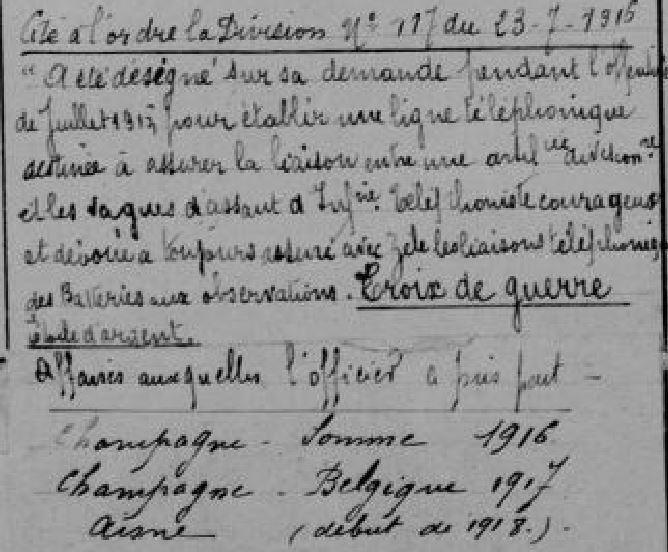 Cité à l'ordre la Division N° 117 du 23-7-1916
"A été désigné sur sa demande pendant l'offensive
de Juillet 1915 pour établir une ligne téléphonique
destinée à assurer la liaison entre une artil rie divisionre
et les vagues d'assaut d'Infrie. Téléphoniste courageux
et dévoué a toujours assuré avec zèle les liaisons téléphoniques
des Batteries aux observations. Croix de guerre
étoile d'argent.
Affaires auxquelles l'officier a pris part -
Champagne - Somme 1916
Champagne - Belgique 1917
Aisne (début de 1918.) -